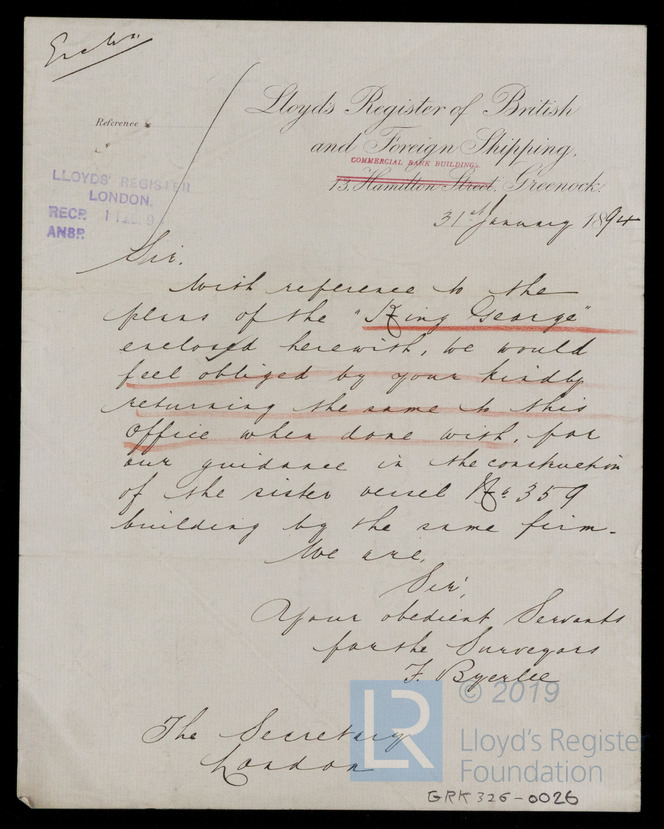 Reference
Lloyd's Register of British
and Foreign Shipping,
COMMERCIAL BANK BUILDINGS.
13, Hamilton Street, Greenock.
LLOYDS' REGISTER
LONDON.
RECD.
ANSD.
31st January 1894
Sir,
With reference to the
plans of the "King George"
enclosed herewith, we would
feel obliged by your kindly
returning the same to this
Office when done with, for
our guidance in the construction
of the sister vessel No 359
building by the same firm.
We are,
Sir,
Your obedient Servants
for the Surveyors
F. Byerlee
The Secretary
London
LR
© 2019
Lloyd's Register
Foundation
GRK 326-0026